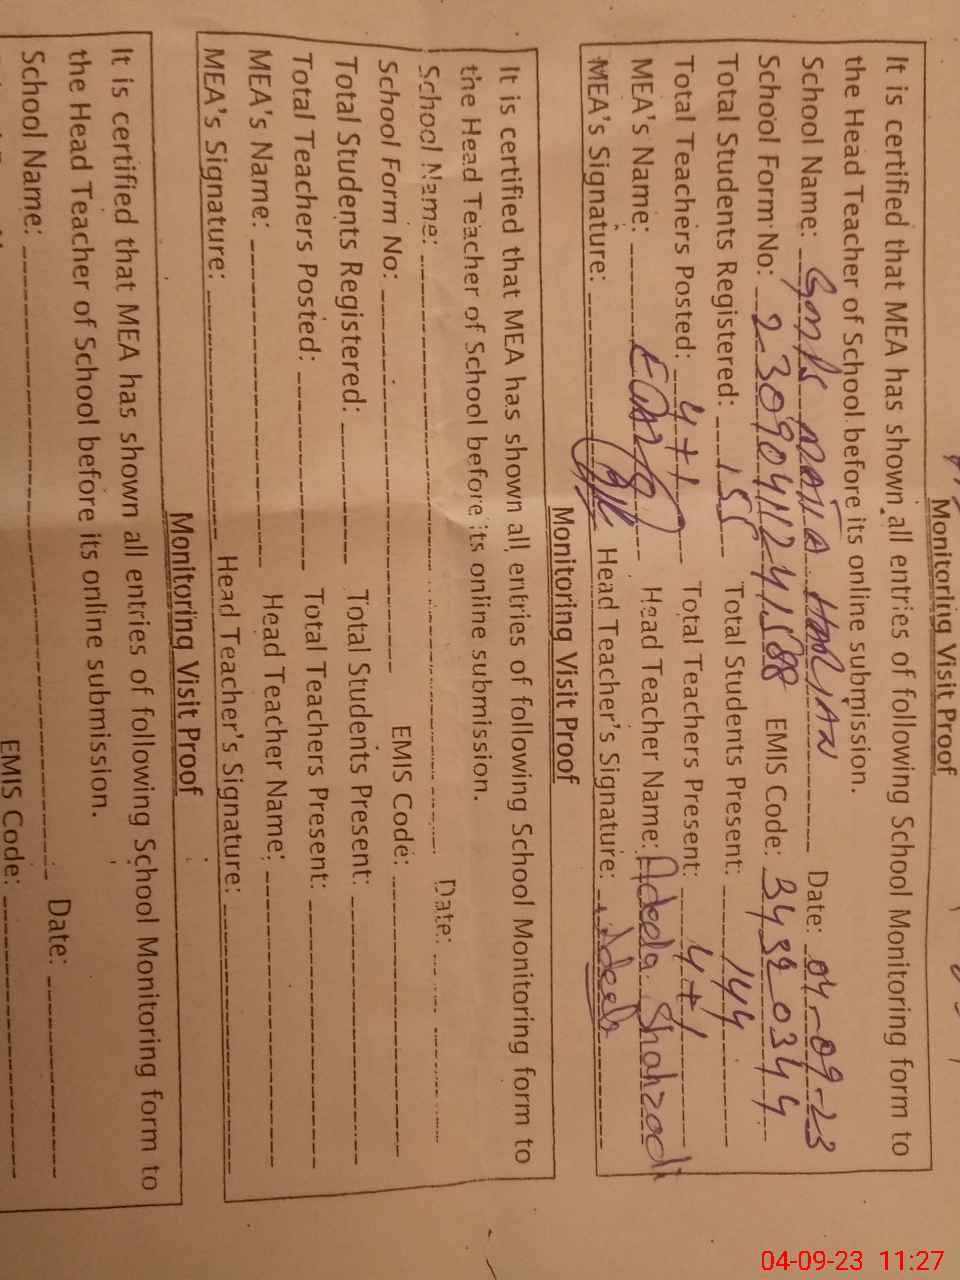 Monitoring Visit Proof
It is certified that MEA has shown all entries of following School Monitoring form to
the Head Teacher of School before its online submission.
School Name: GMPS Date: 04-09-23
School Form No: 23090411241588 EMIS Code: 34320344
Total Students Registered: 155 Total Students Present: 144
Total Teachers Posted: 4+1 Total Teachers Present: 4+1
MEA's Name: Head Teacher Name: Adeela Shahzadi
MEA's Signature: Head Teacher's Signature: Adeela
Monitoring Visit Proof
It is certified that MEA has shown all entries of following School Monitoring form to
the Head Teacher of School before its online submission.
School Name: Date:
School Form No: EMIS Code:
Total Students Registered: Total Students Present:
Total Teachers Posted: Total Teachers Present:
MEA's Name: Head Teacher Name:
MEA's Signature: Head Teacher's Signature:
Monitoring Visit Proof
It is certified that MEA has shown all entries of following School Monitoring form to
the Head Teacher of School before its online submission.
School Name: Date:
EMIS Code:
04-09-23 11:27